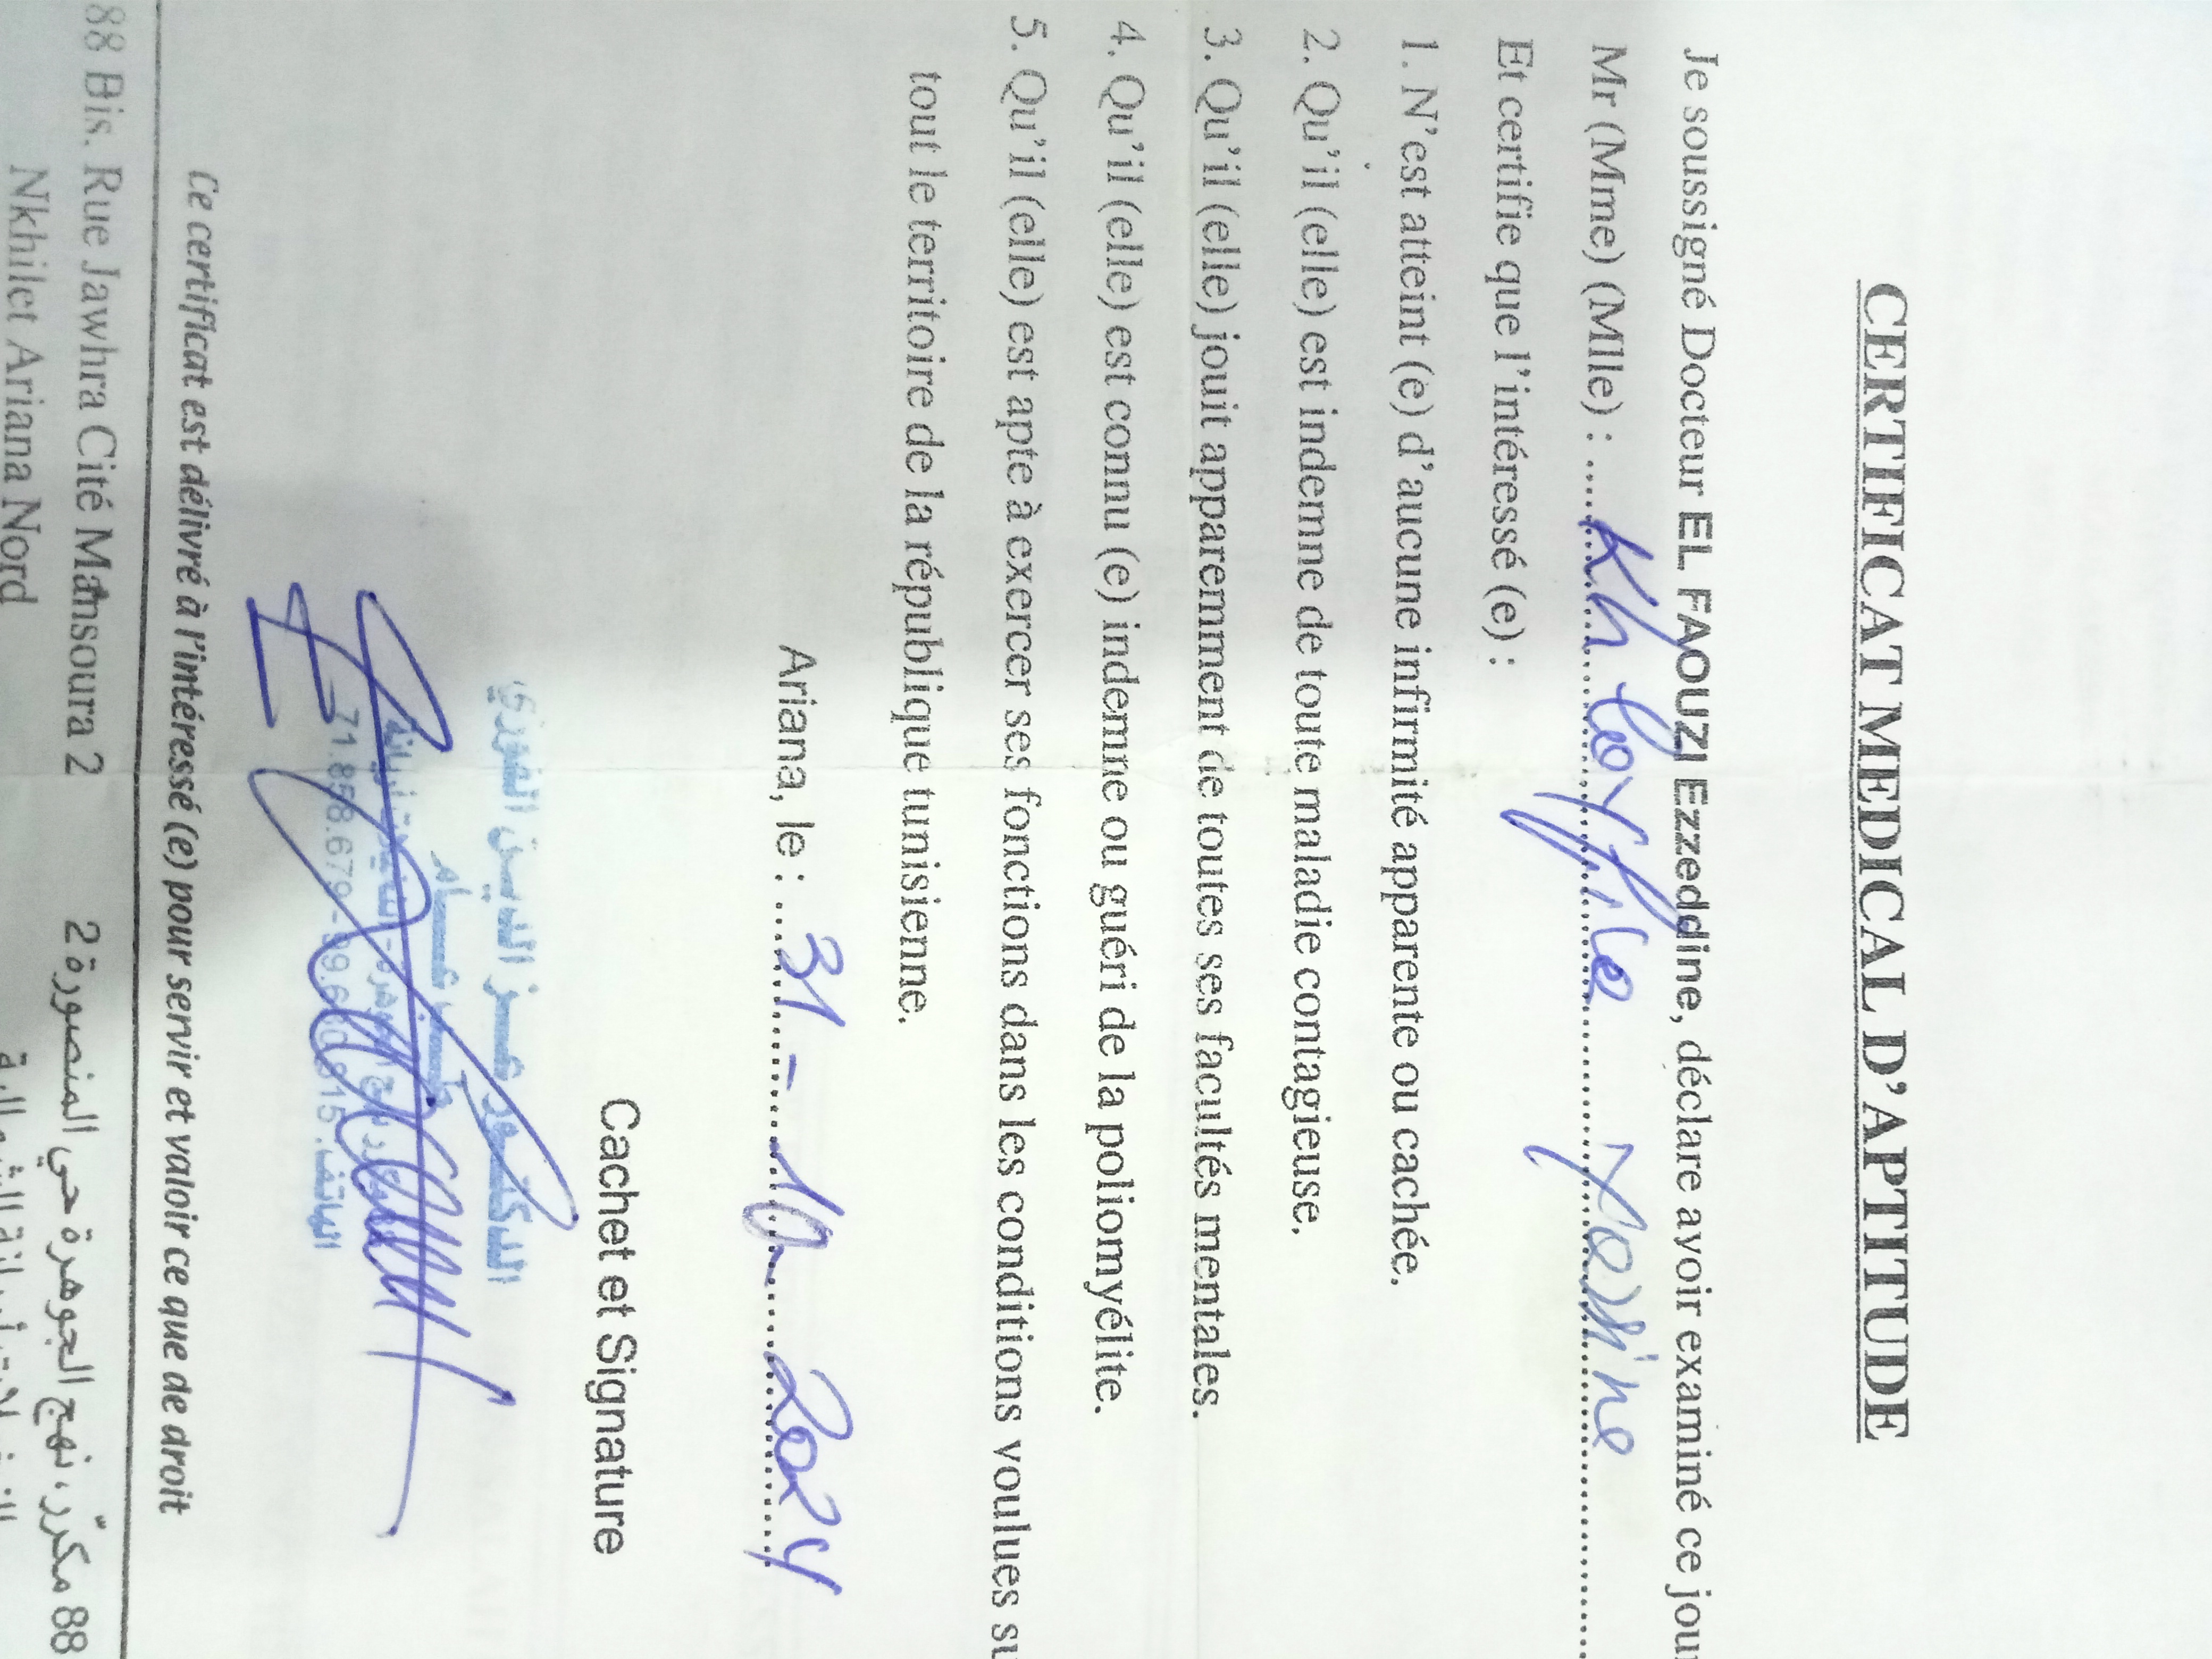 CERTIFICAT MEDICAL D'APTITUDE
Je soussigné Docteur EL FAOUZI Ezzeddine, déclare avoir examiné ce jour
Mr (Mme) (Mlle) : Yassine
Et certifie que l'intéressé (e) :
1. N'est atteint (e) d'aucune infirmité apparente ou cachée.
2. Qu'il (elle) est indemne de toute maladie contagieuse.
3. Qu'il (elle) jouit apparemment de toutes ses facultés mentales.
4. Qu'il (elle) est connu (e) indemne ou guéri de la poliomyélite.
5. Qu'il (elle) est apte à exercer ses fonctions dans les conditions voulues su
tout le territoire de la république tunisienne.
Ariana, le : 31-10-2024
Cachet et Signature
الدكتور عز الدين الفوزي
الهاتف: 71.858.679
Ce certificat est délivré à l'intéressé (e) pour servir et valoir ce que de droit
88 Bis. Rue Jawhra Cité Mansoura 2
88 مكرّر، نهج الجوهرة حي المنصورة 2
Nkhilet Ariana Nord